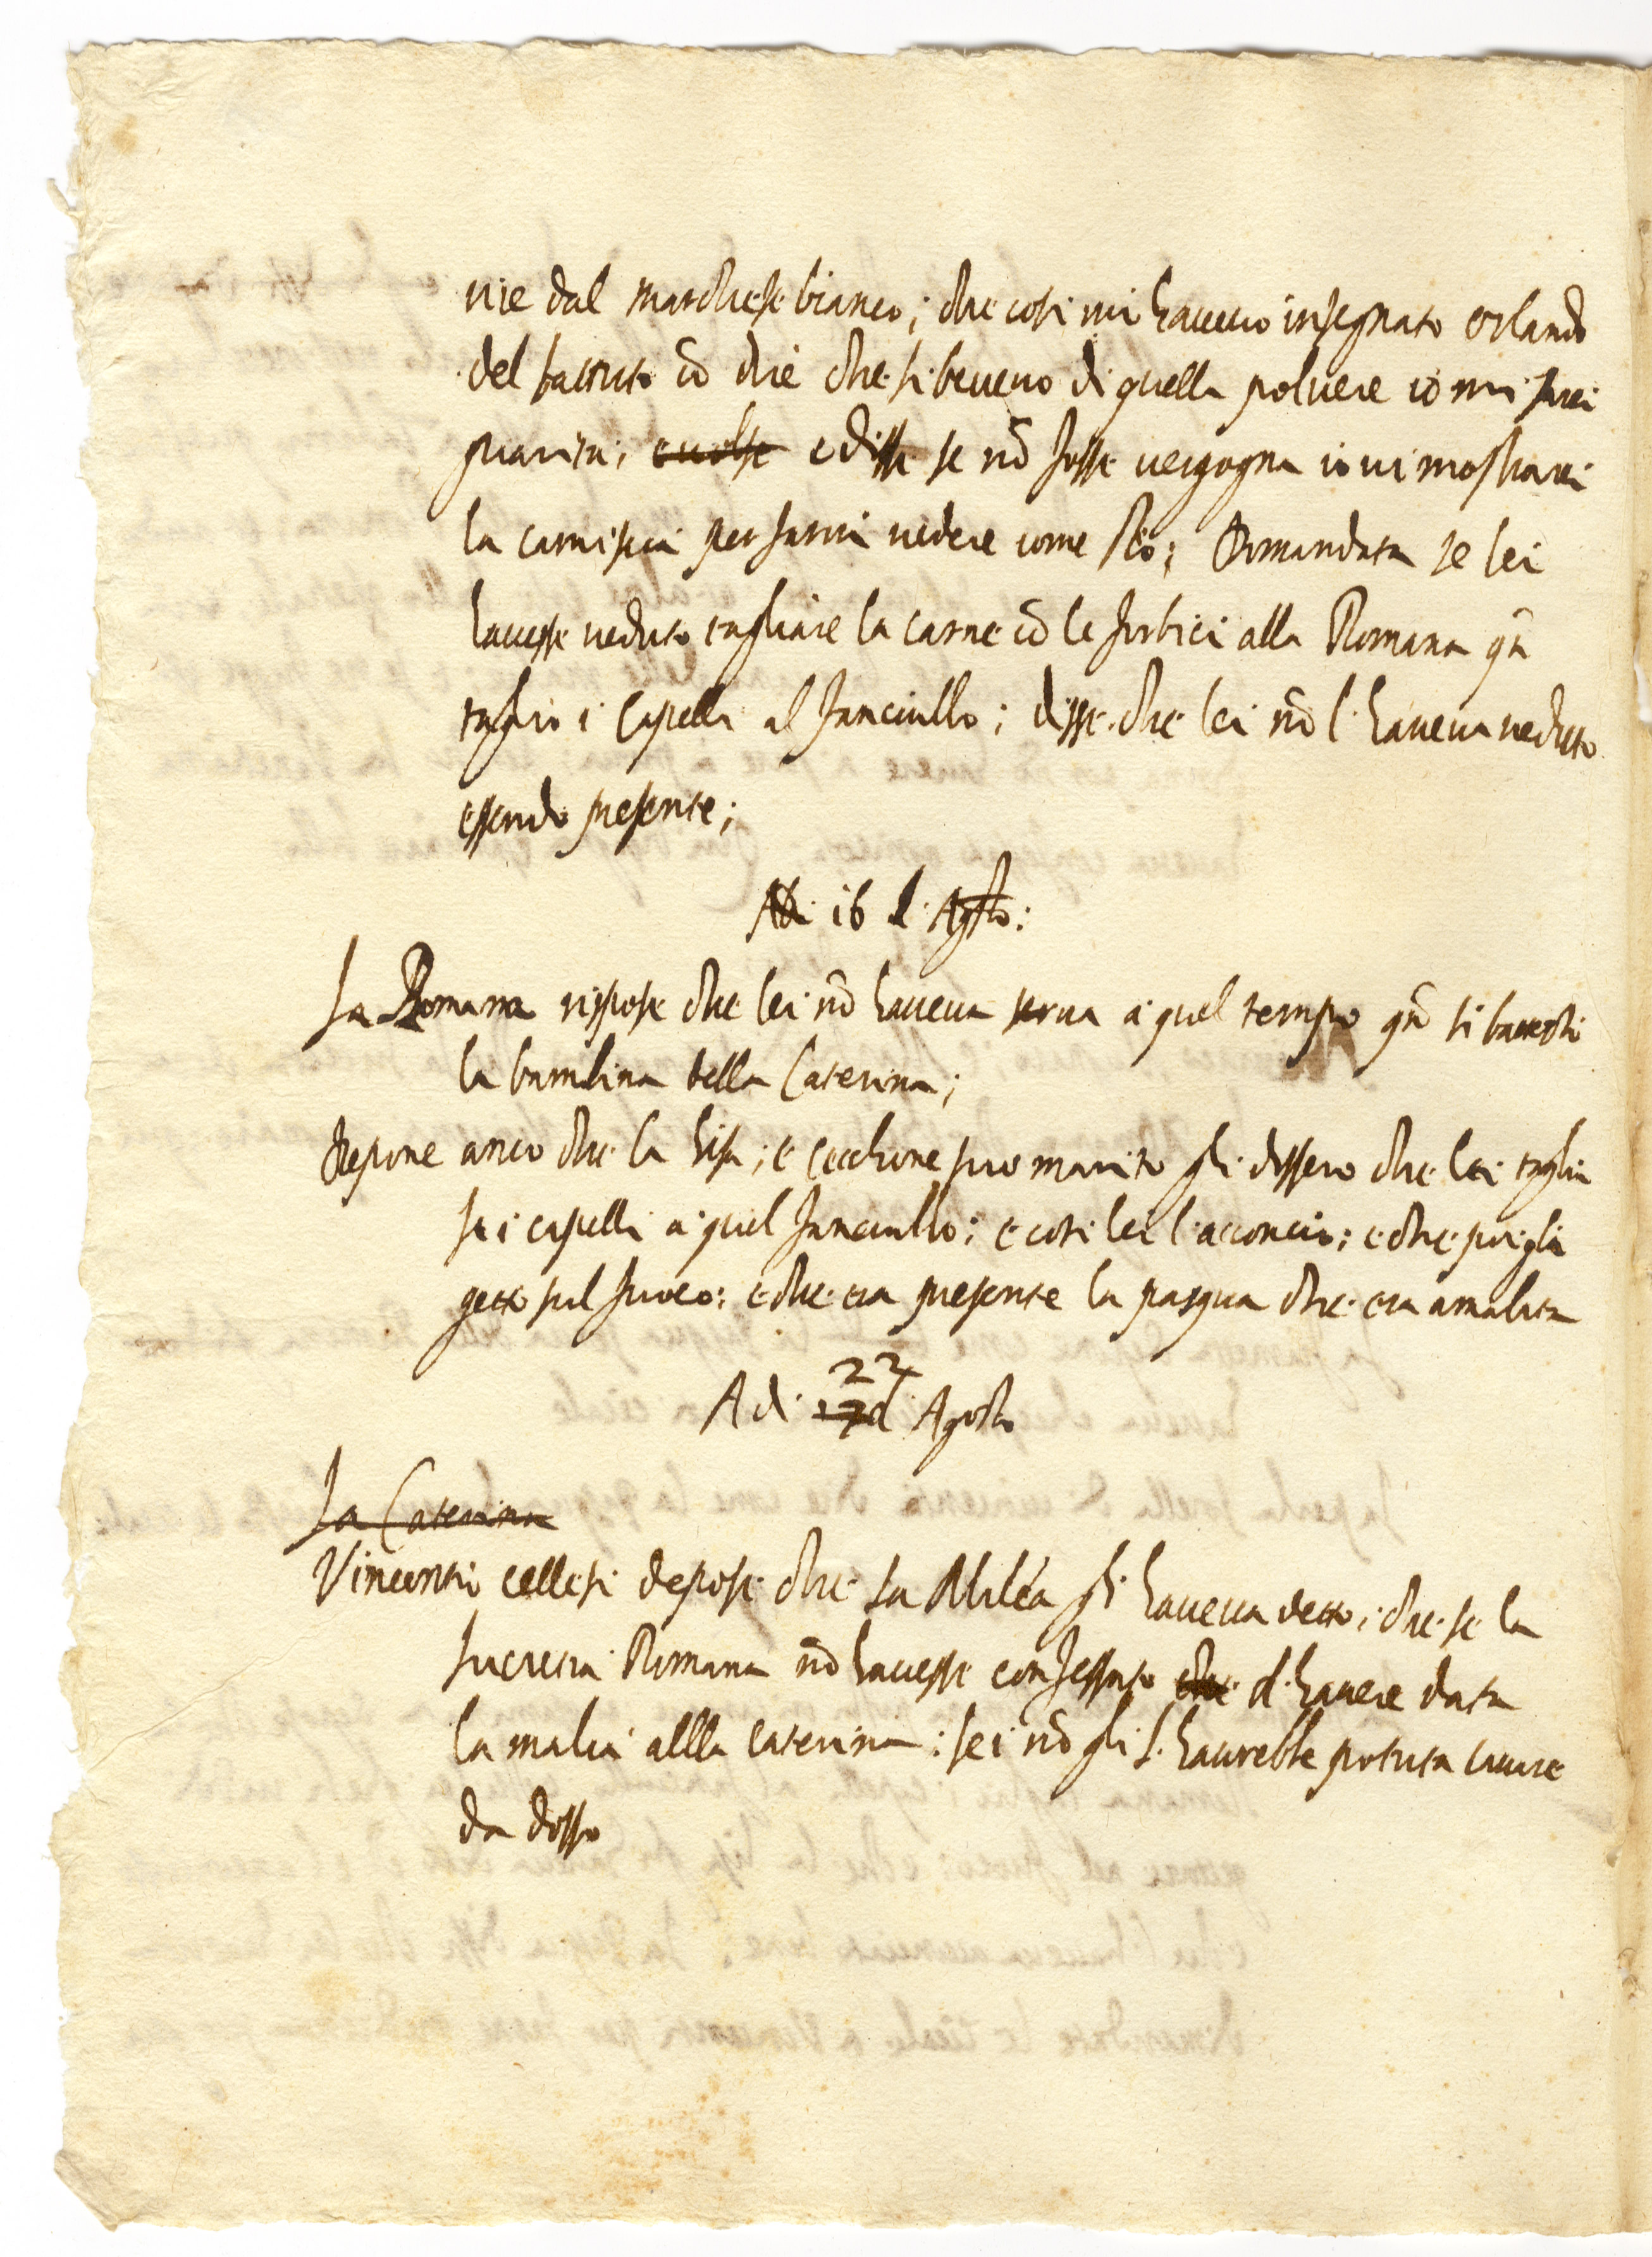 nie dal marchese bianco; che cosi mi haveuo insegnato orlando
del battuto cō dire che si beueuo di quella poluere io mi sarei
guarita; e uolse e disse se nō fosse uergogna io ui mostrarei
la camiscia per farui uedere come sto; Domandata se lei
hauesse ueduto tagliare la carne cō le forbici alla Romana qn̄
taglio i capelli al fanciullo; disse che lei nō l'haueua ueduto
essendo presente;
Adi 16 d. Agsto:
La Romana rispose che lei nō haueua serua a quel tempo qn̄ si battezò
la bambina della Caterina;
depone anco che la lisa; e cecchone suo marito gli dissero che lei taglia
se i capelli a quel fanciullo; e cosi lei l'acconcio; e che poi gli
getto sul fuoco: e che era presente la pasqua che era amalata
Adi 22 d Agosto
La Caterina
Vincentio cellesi depose che la Milea gli haueua detto; che se la
lucretia Romana nō hauesse confessato che d'hauere data
la malia allla Caterina: lei nō gli l'haurebbe potuta cauare
da dosso